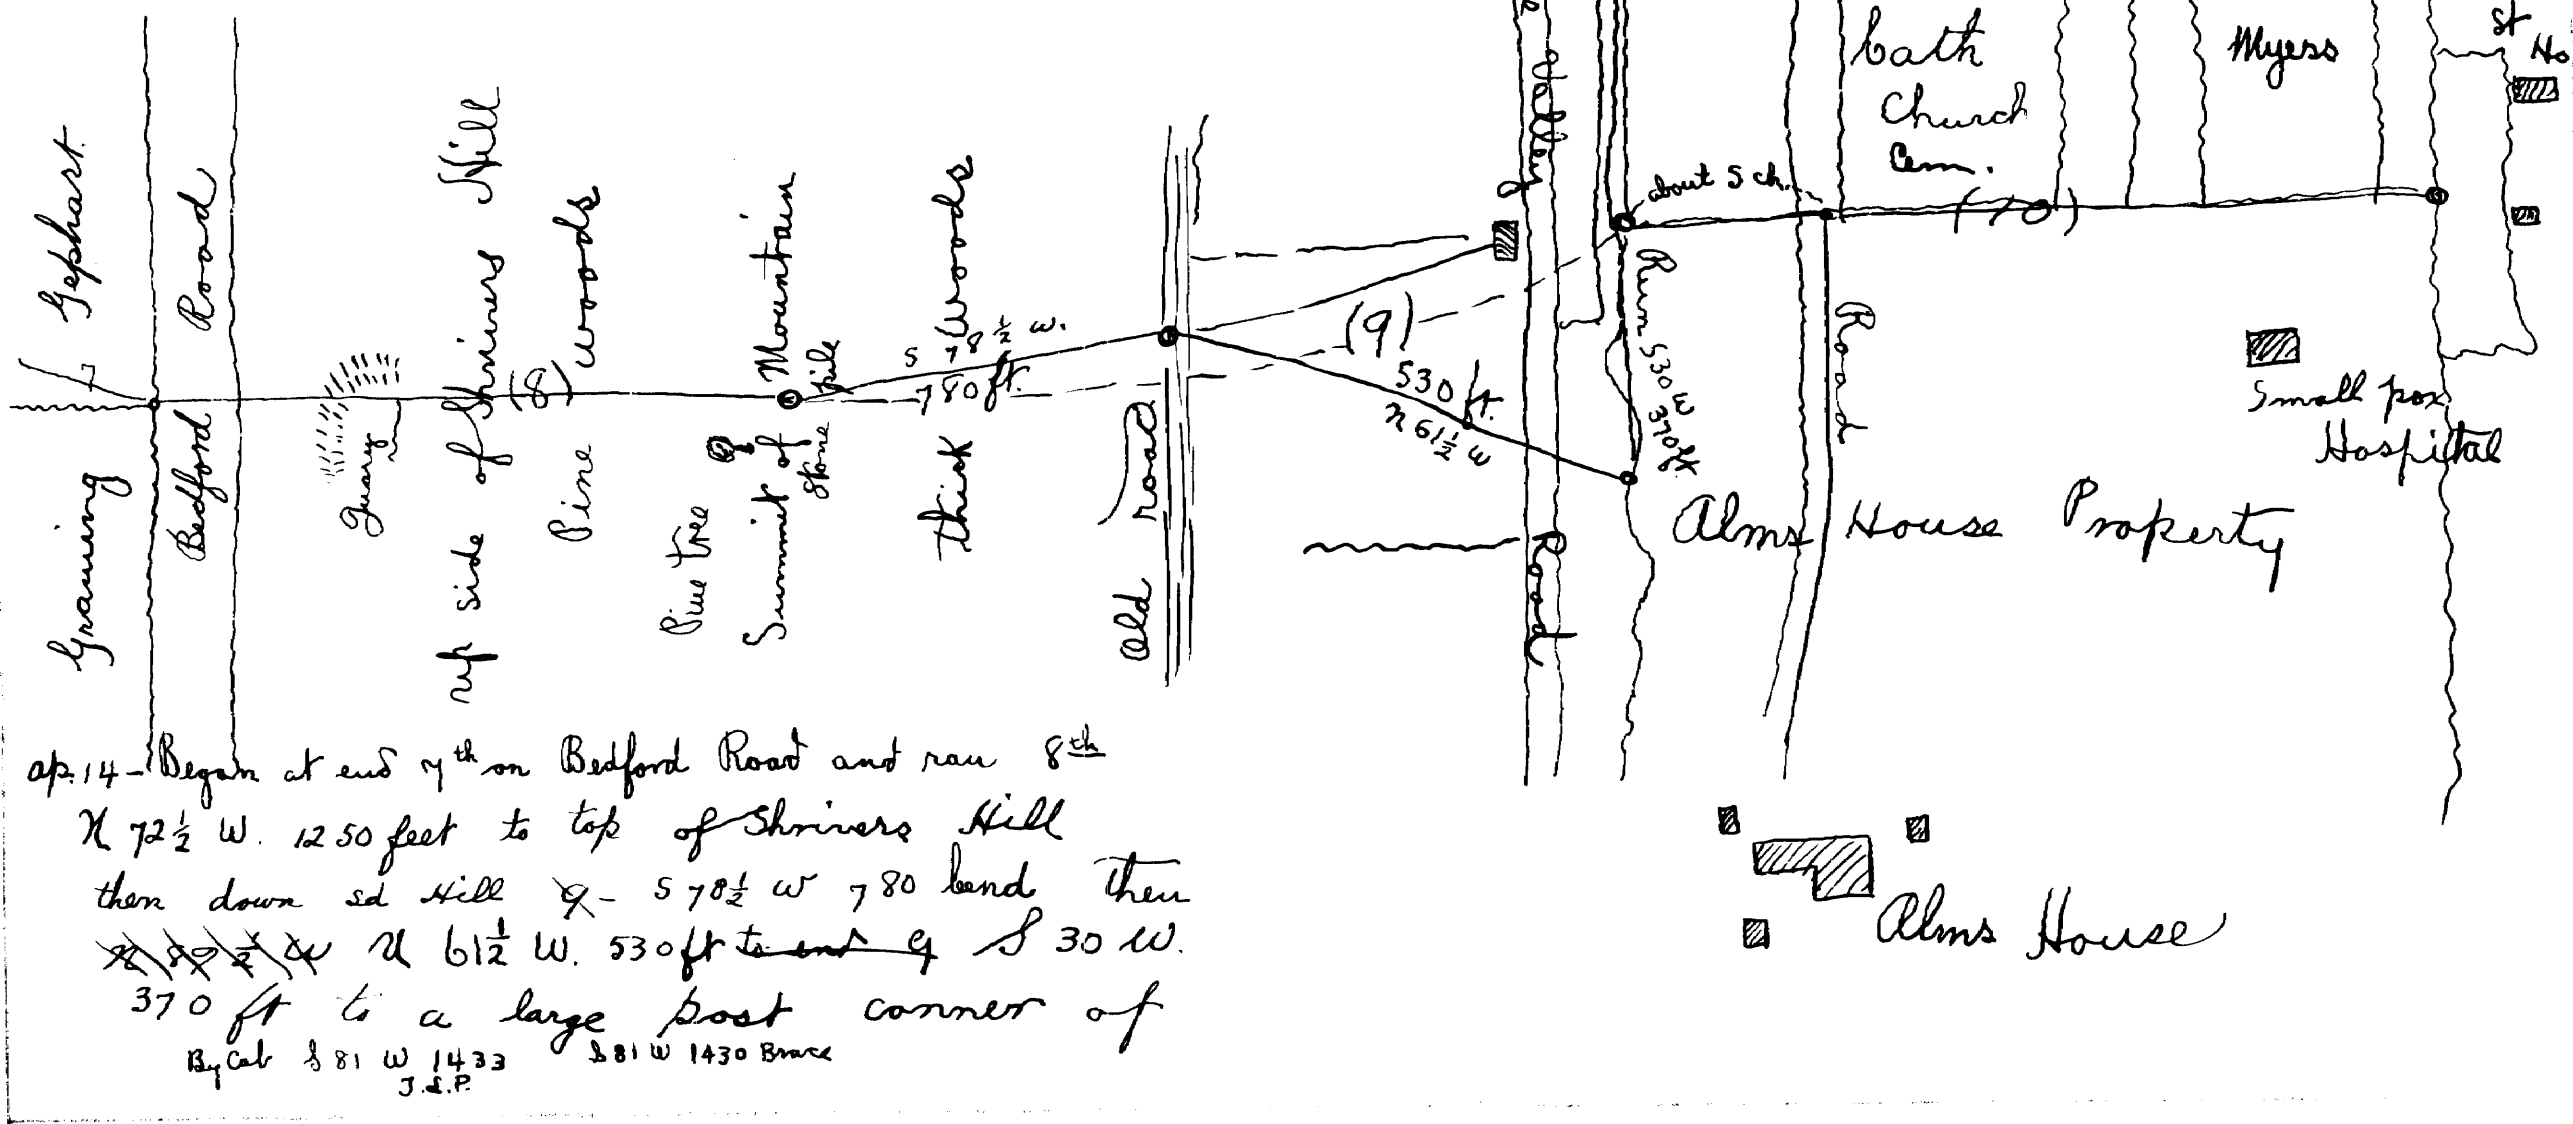 Gephart.
Graining
Bedford Road
Quary
up side of Shrivers Hill
(8)
Pine woods
Pine tree
Summit of Mountain
Stone pile
thick Woods
S 78½ W.
780 ft.
Old road
(9)
530 ft.
N 61½ W
Valley Road
Run S30W 370 ft
about 5 ch.
Road
Cath
Church
Cem.
(10)
Myers
St
Ho
Small pox
Hospital
Alms House Property
Alms House
Ap. 14 - Began at end 7th on Bedford Road and ran 8th
N 72½ W. 1250 feet to top of Shrivers Hill
then down sd Hill 9 - S 78½ W 780 bend then
N 61½ W. 530 ft to end 9 S 30 W.
370 ft to a large post corner of
By Cal S 81 W 1433 S 81 W 1430 Brace
J.L.P.